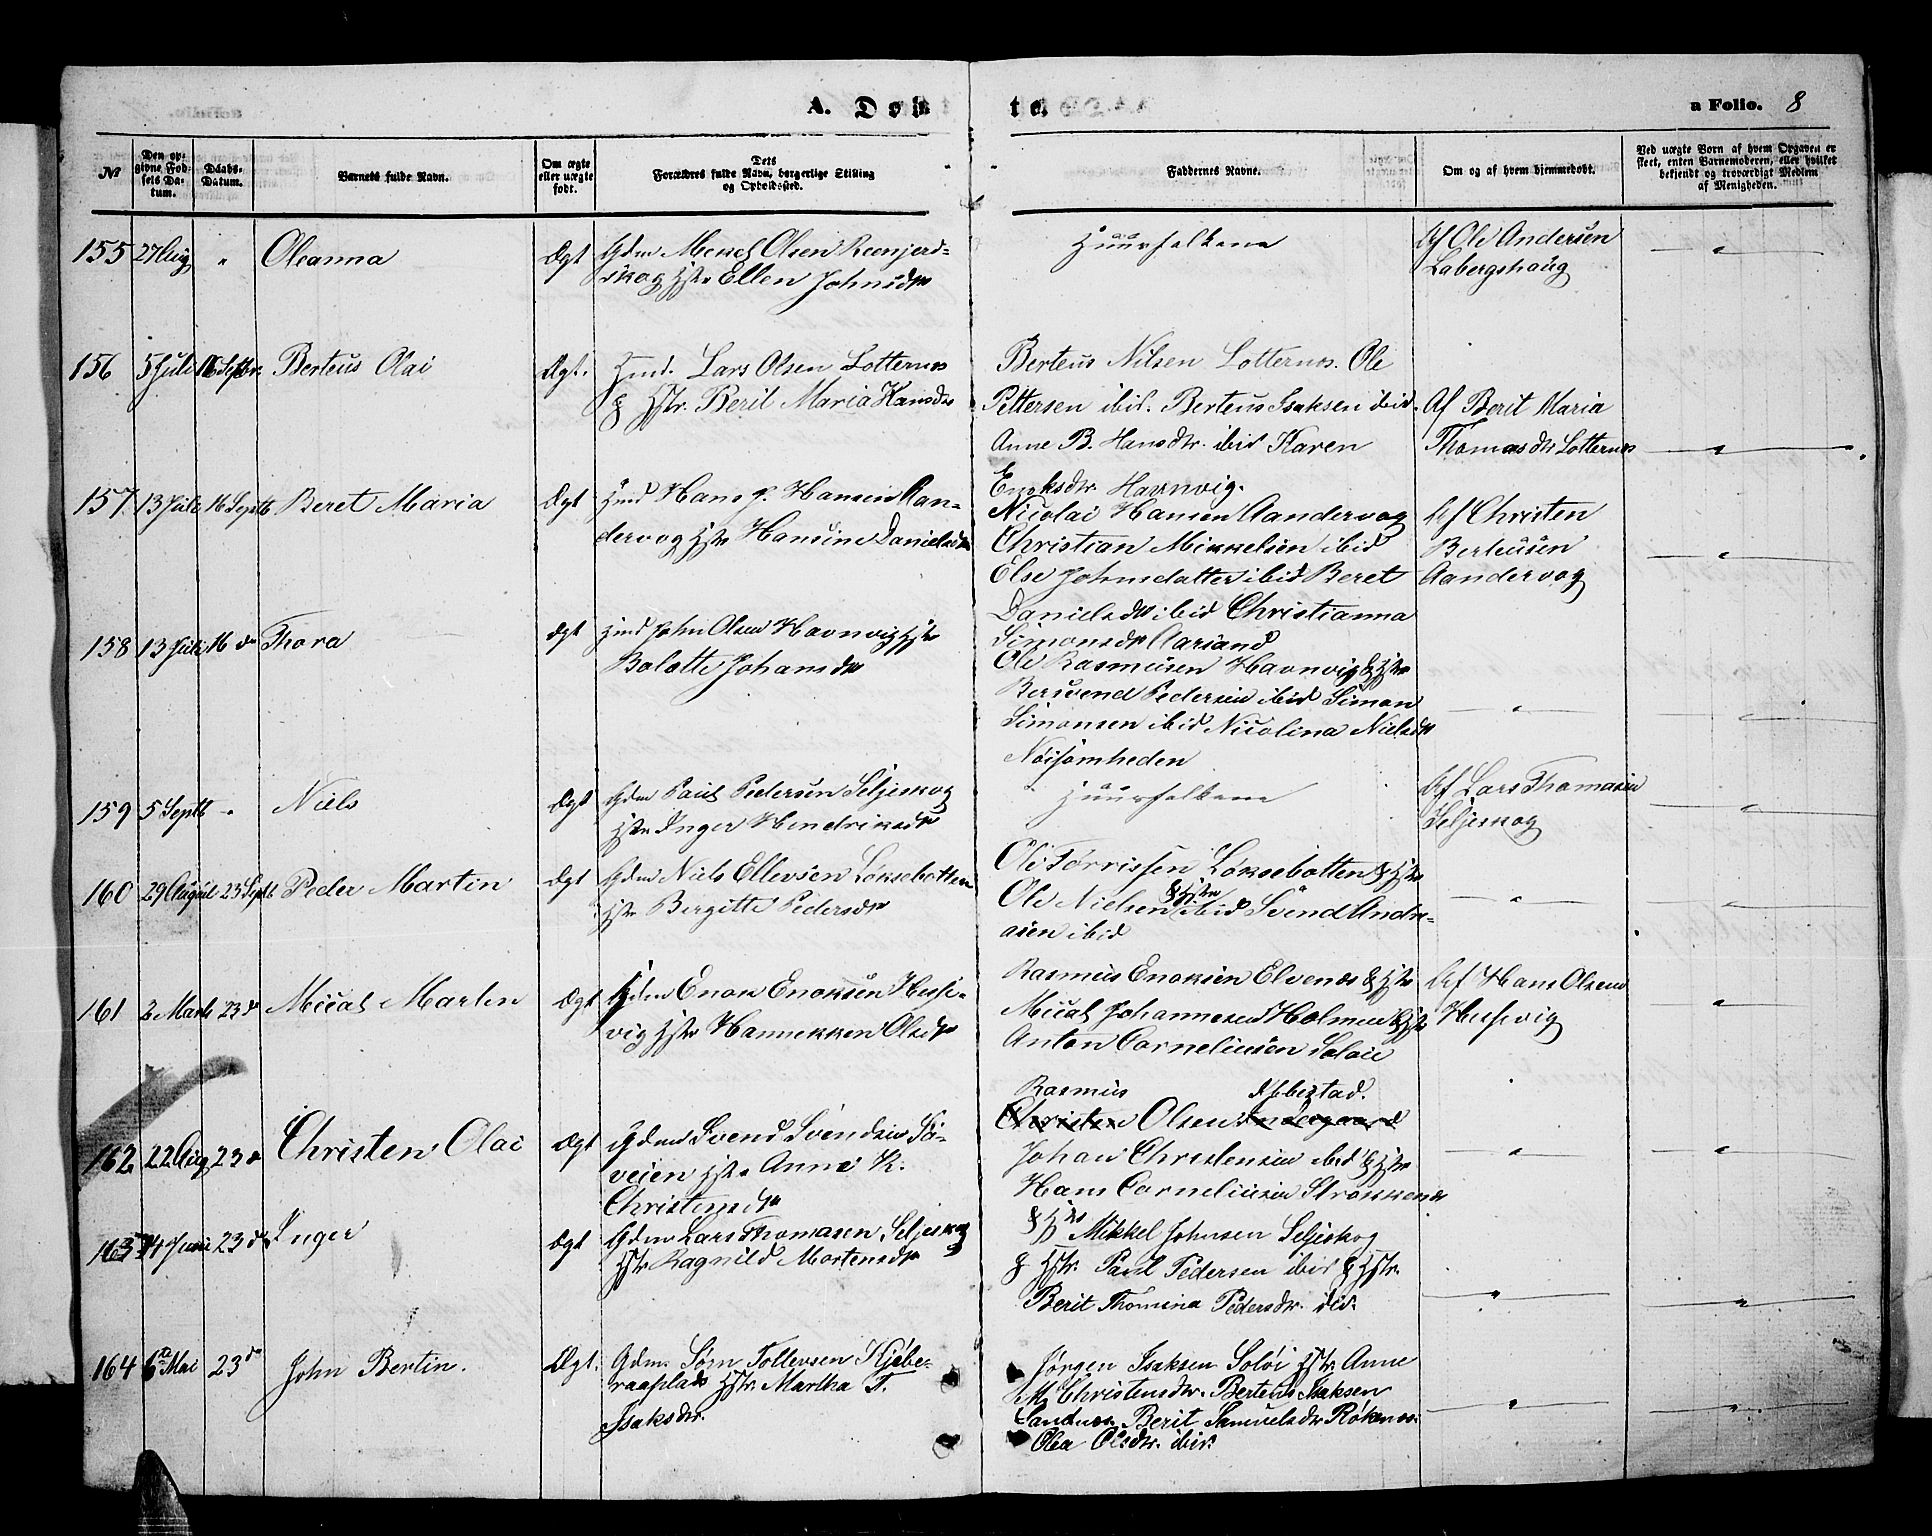 A. Døb te.
a Folio. 8
№
Den opgivne Fødsels Datum.
Daabs-Datum.
Barnets fulde Navn.
Om ægte eller uægte født.
Dets Forældres fulde Navn, borgerlige Stilling og Opholdssted.
Faddernes Navne.
Om og af hvem hjemmedøbt.
Ved uægte Børn af hvem Opgaven er skeet, enten Barnemoderen, eller hvilket bekjendt og troværdigt Medlem af Menigheden.
155 27 Aug " Oleanna Ægt Gdm Mikal Olsen
skog Hstr Ellen Johnsdtr
Huusfolkene
Af Ole Andersen
Labergshaug
156 5 Juli 16 Septbr. Berteus Olai Ægt. Hmd. Lars Olsen Lotternes
& Hstr. Beril Maria Hansdtr
Berteus Nilsen Lotternes. Ole
Pettersen ibid. Berteus Isaksen ibid.
Anne B. Hansdtr. ibid Karen
Enoksdtr. Havnvig.
Af Berit Maria
Thomasdtr Lotternes
157 13 Juli 16 Septb Beret Maria Ægt Hmd Hans P. Hansen Aan-
dervag Hstr Hansine Danielsdtr
Nicolai Hansen Aandervag
Christian Mikkelsen ibid
Else Johnsdatter ibid Beret
Danielsdtr ibid Christianna
Simonsdtr Aarsand
Af Christen
Berteusen
Aandervag
158 13 Juli 16 do Thora Ægt Hmd John Olsen Havnvig Hstr
Balotte Johansdtr
Ole Rasmusen Havnvig & Hstr
Bersvend Pedersen ibid Simon
Simonsen ibid Nicolina Nielsdtr
Nøisomheden
159 5 Septb " Niels Ægt Gdm Paul Pedersen Seljeskog
Hstr Inger Hendriksdtr
Huusfolkene
Af Lars Thomasen
Seljeskog
160 29 August 23 Septb Peder Martin Ægt Gdm Niels Ellevsen Løksebotten
Hstr Bergitte Pedersdtr
Ole Torrissen Løksebotten & Hstr
Ole Nielsen & Hstr ibid Svend Andre-
asen ibid
161 2 Marts 23 do Mical Martin Ægt Gdm Enok Enoksen Hesse-
vig Hstr Hannekken Olsdtr
Rasmus Enoksen Elvenes & Hstr
Mical Johannesen Holmen & Hstr
Anton Corneliusen Soløie
Af Hans Olsen
Hessevig
162 22 Aug 23 do Christen Olai Ægt Gdm Svend Svendsen Sø-
veien Hstr Anne K.
Christensdtr
Rasmus Ibbestad.
Christen Olsen Andergaard
Johan Christensen ibid & Hstr
Hans Corneliusen Strokkenes
& Hstr
163 24 Juni 23 do Inger Ægt Gdm Lars Thomasen Seljeskog
Hstr Ragnild Mortensdtr
Mikkel Johnsen Seljeskog
& Hstr. Paul Pedersen ibid & Hstr.
Berit Thomina Pedersdtr. ibid.
164 6te Mai 23 do John Bertin. Ægt. Gdm. Sørn Tollevsen Kjøbe-
raaplads Hstr. Martha T.
Isaksdtr.
Jørgen Isaksen Soløi Hstr. Anne
M. Christensdtr. Berteus Isaksen
Sandnes. Berit Samuelsdtr Røkenes.
Olea Olsdtr. ibid.